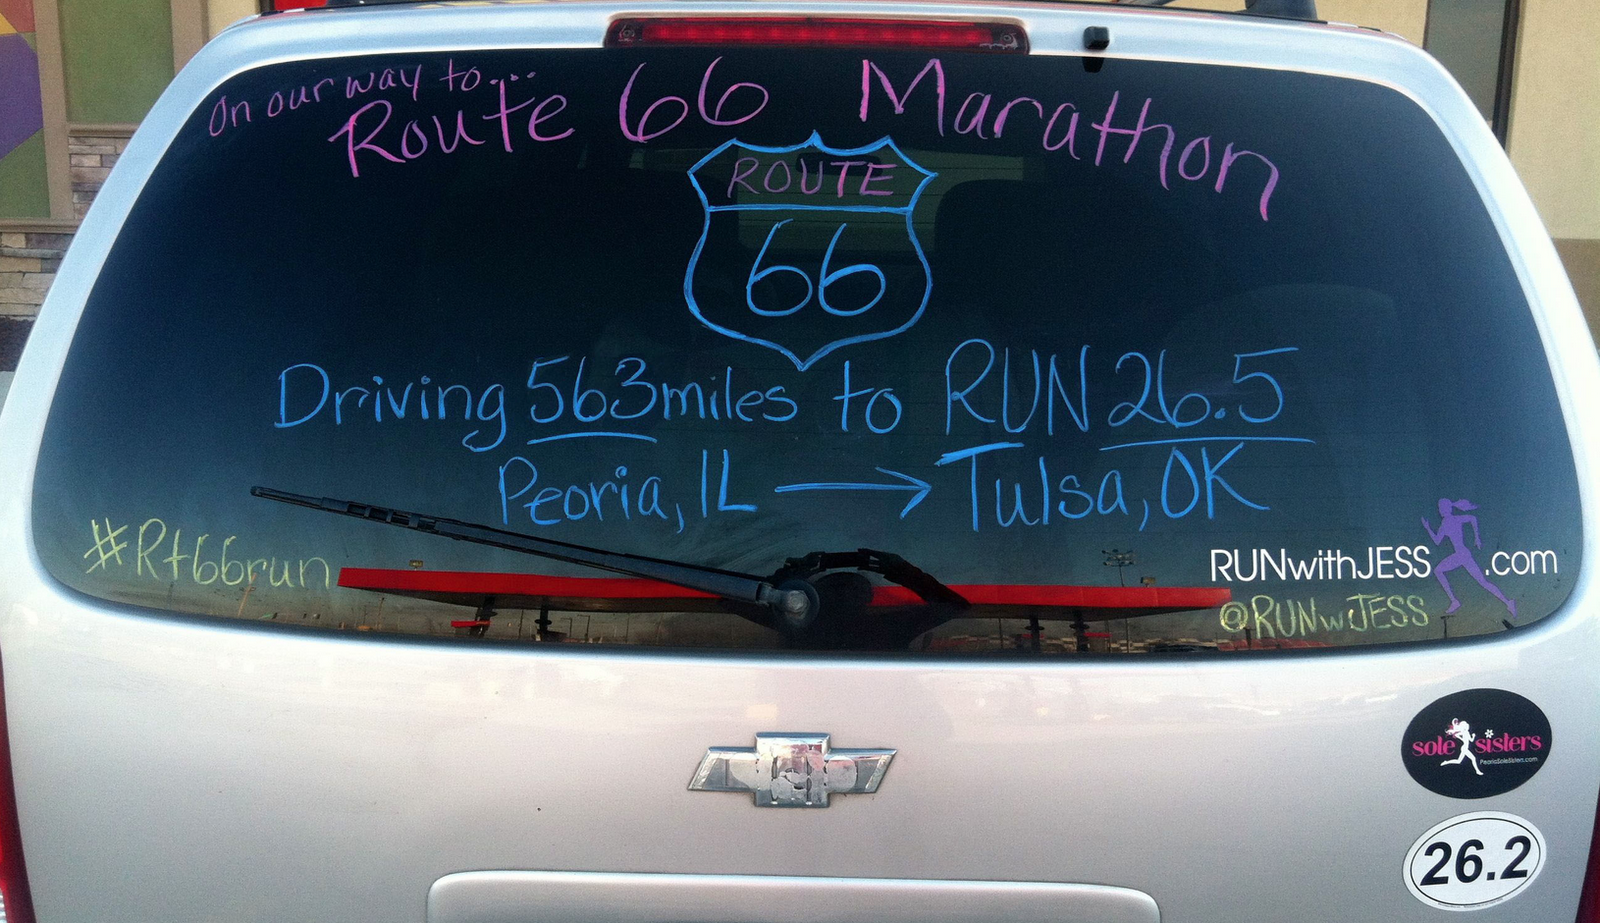 On our way to....
Route 66 Marathon
ROUTE
66
Driving 563 miles to RUN 26.5
Peoria, IL → Tulsa, OK
#Rt66run
RUNwithJESS.com
@RUNwJESS
sole sisters
PeoriaSoleSisters.com
26.2